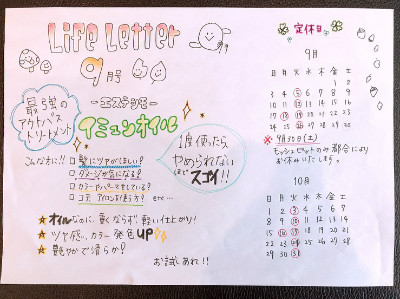 Life Letter
9月号
最強の
アウトバス
トリートメント
-エステシモ-
イミュンオイル
1度使ったら
やめられない
ほど
スゴイ!!
こんな方に!!
□ 髪にツヤがほしい?
□ ダメージが気になる?
□ カラーやパーマをしている?
□ コテ、アイロンよく使う方? etc...
★ オイルなのに、重くならず、軽い仕上がり!
★ ツヤ感、カラー発色UP
★ 艶やかで滑らか?
お試しあれ!!
定休日
9月
日 月 火 水 木 金 土
1 2
3 4 5 6 7 8 9
10 11 12 13 14 15 16
17 18 19 20 21 22 23
24 25 26 27 28 29 30
※ 9月30日(土)
の都合により
お休みいたします。
10月
日 月 火 水 木 金 土
1 2 3 4 5 6 7
8 9 10 11 12 13 14
15 16 17 18 19 20 21
22 23 24 25 26 27 28
29 30 31